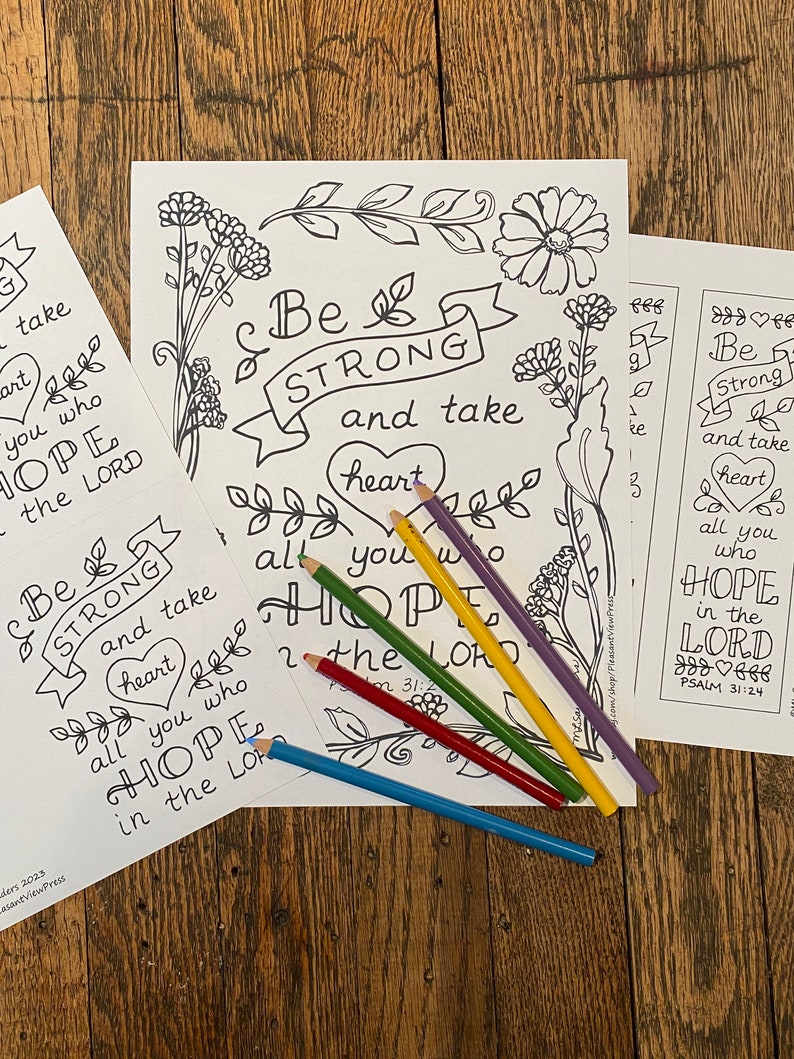 Be
STRONG
and take
heart
all you who
HOPE
the LORD
Psalm 31:2
take
heart
you who
HOPE
in the LORD
Be
STRONG
and take
heart
all you who
HOPE
in the LORD
2023
Be
Strong
and take
heart
all you
who
HOPE
in the
LORD
PSALM 31:24